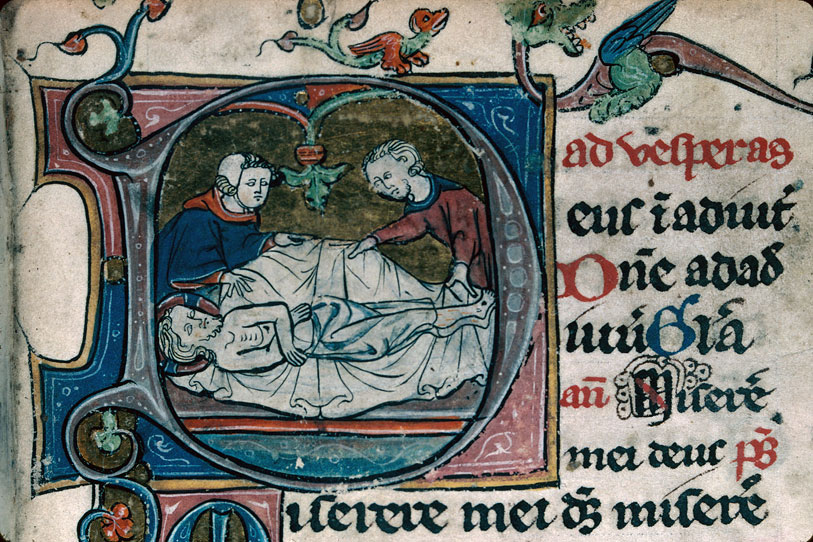 ad vesperas
Deus ī adiut̄
Dn̄e ad ad
iutū Gl̄a
an̄ Miserē
mei deus ps̄
Miserere mei ds̄ miserē